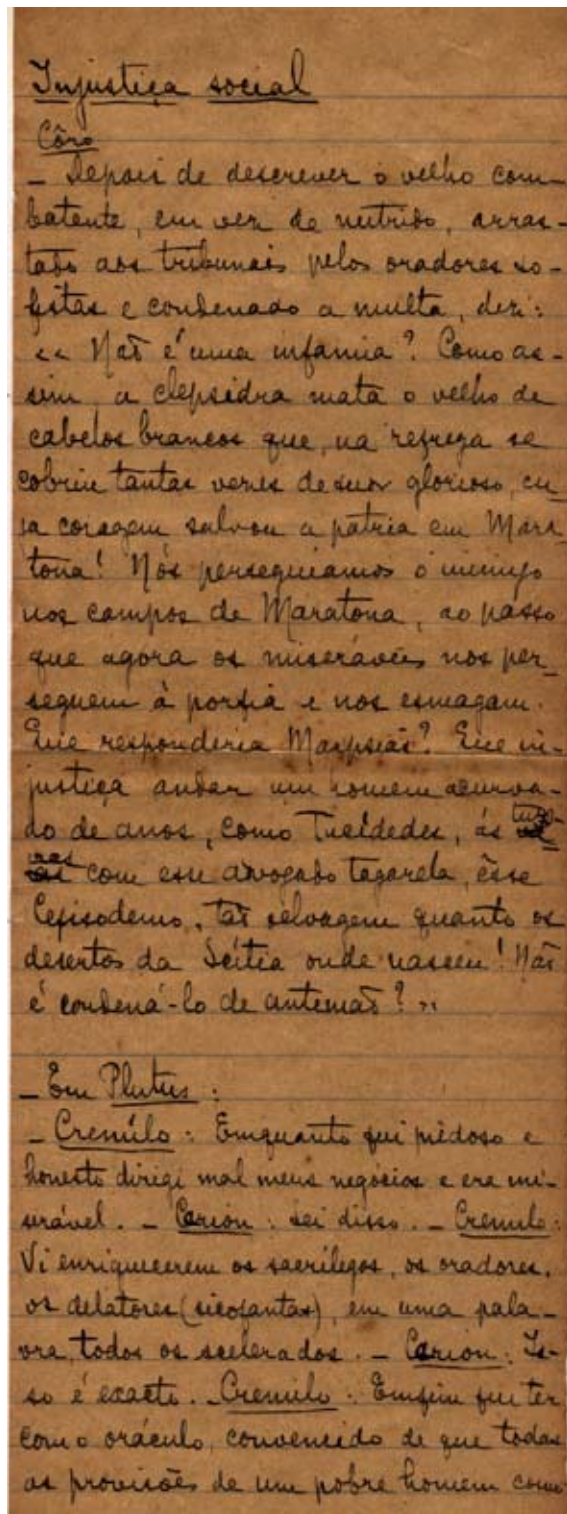 Injustiça social
Côro
- Depois de descrever o velho com-
batente, em vez de nutrido, arras-
tado aos tribunais pelos oradores so-
fistas e condenado a multa, dez:
<< Não é uma infamia? Como as-
sim, a clepsidra mata o velho de
cabelos brancos que, na refrega se
cobriu tantas vezes de suor glorioso, cu-
ja coragem salvou a patria em Mara-
tona! Nós perseguiamos o inimigo
nos campos de Maratona, ao passo
que agora os miseráveis nos per-
seguem à porfia e nos esmagam.
Que responderia Marpsias? Que in-
justiça andar um homem acurva-
do de anos, como Tucídedes, ás turr-
ras com esse advogado tagarela, êsse
Cefisodemo, tão selvagem quanto os
desertos da Scítia onde nasceu! Não
é condená-lo de antemão? >>
- Em Plutus:
- Cremilo: Emquanto fui piedoso e
honesto dirigi mal meus negócios e era mi-
serável. - Carion: Sei disso. - Cremilo:
Vi enriquecerem os sacrilegos, os oradores,
os delatores (sicofantas), em uma pala-
vra, todos os scelerados. - Carion: Is-
so é exacto. - Cremilo: Emfim fui ter
com o oráculo, convencido de que todas
as provisões de um pobre homem como